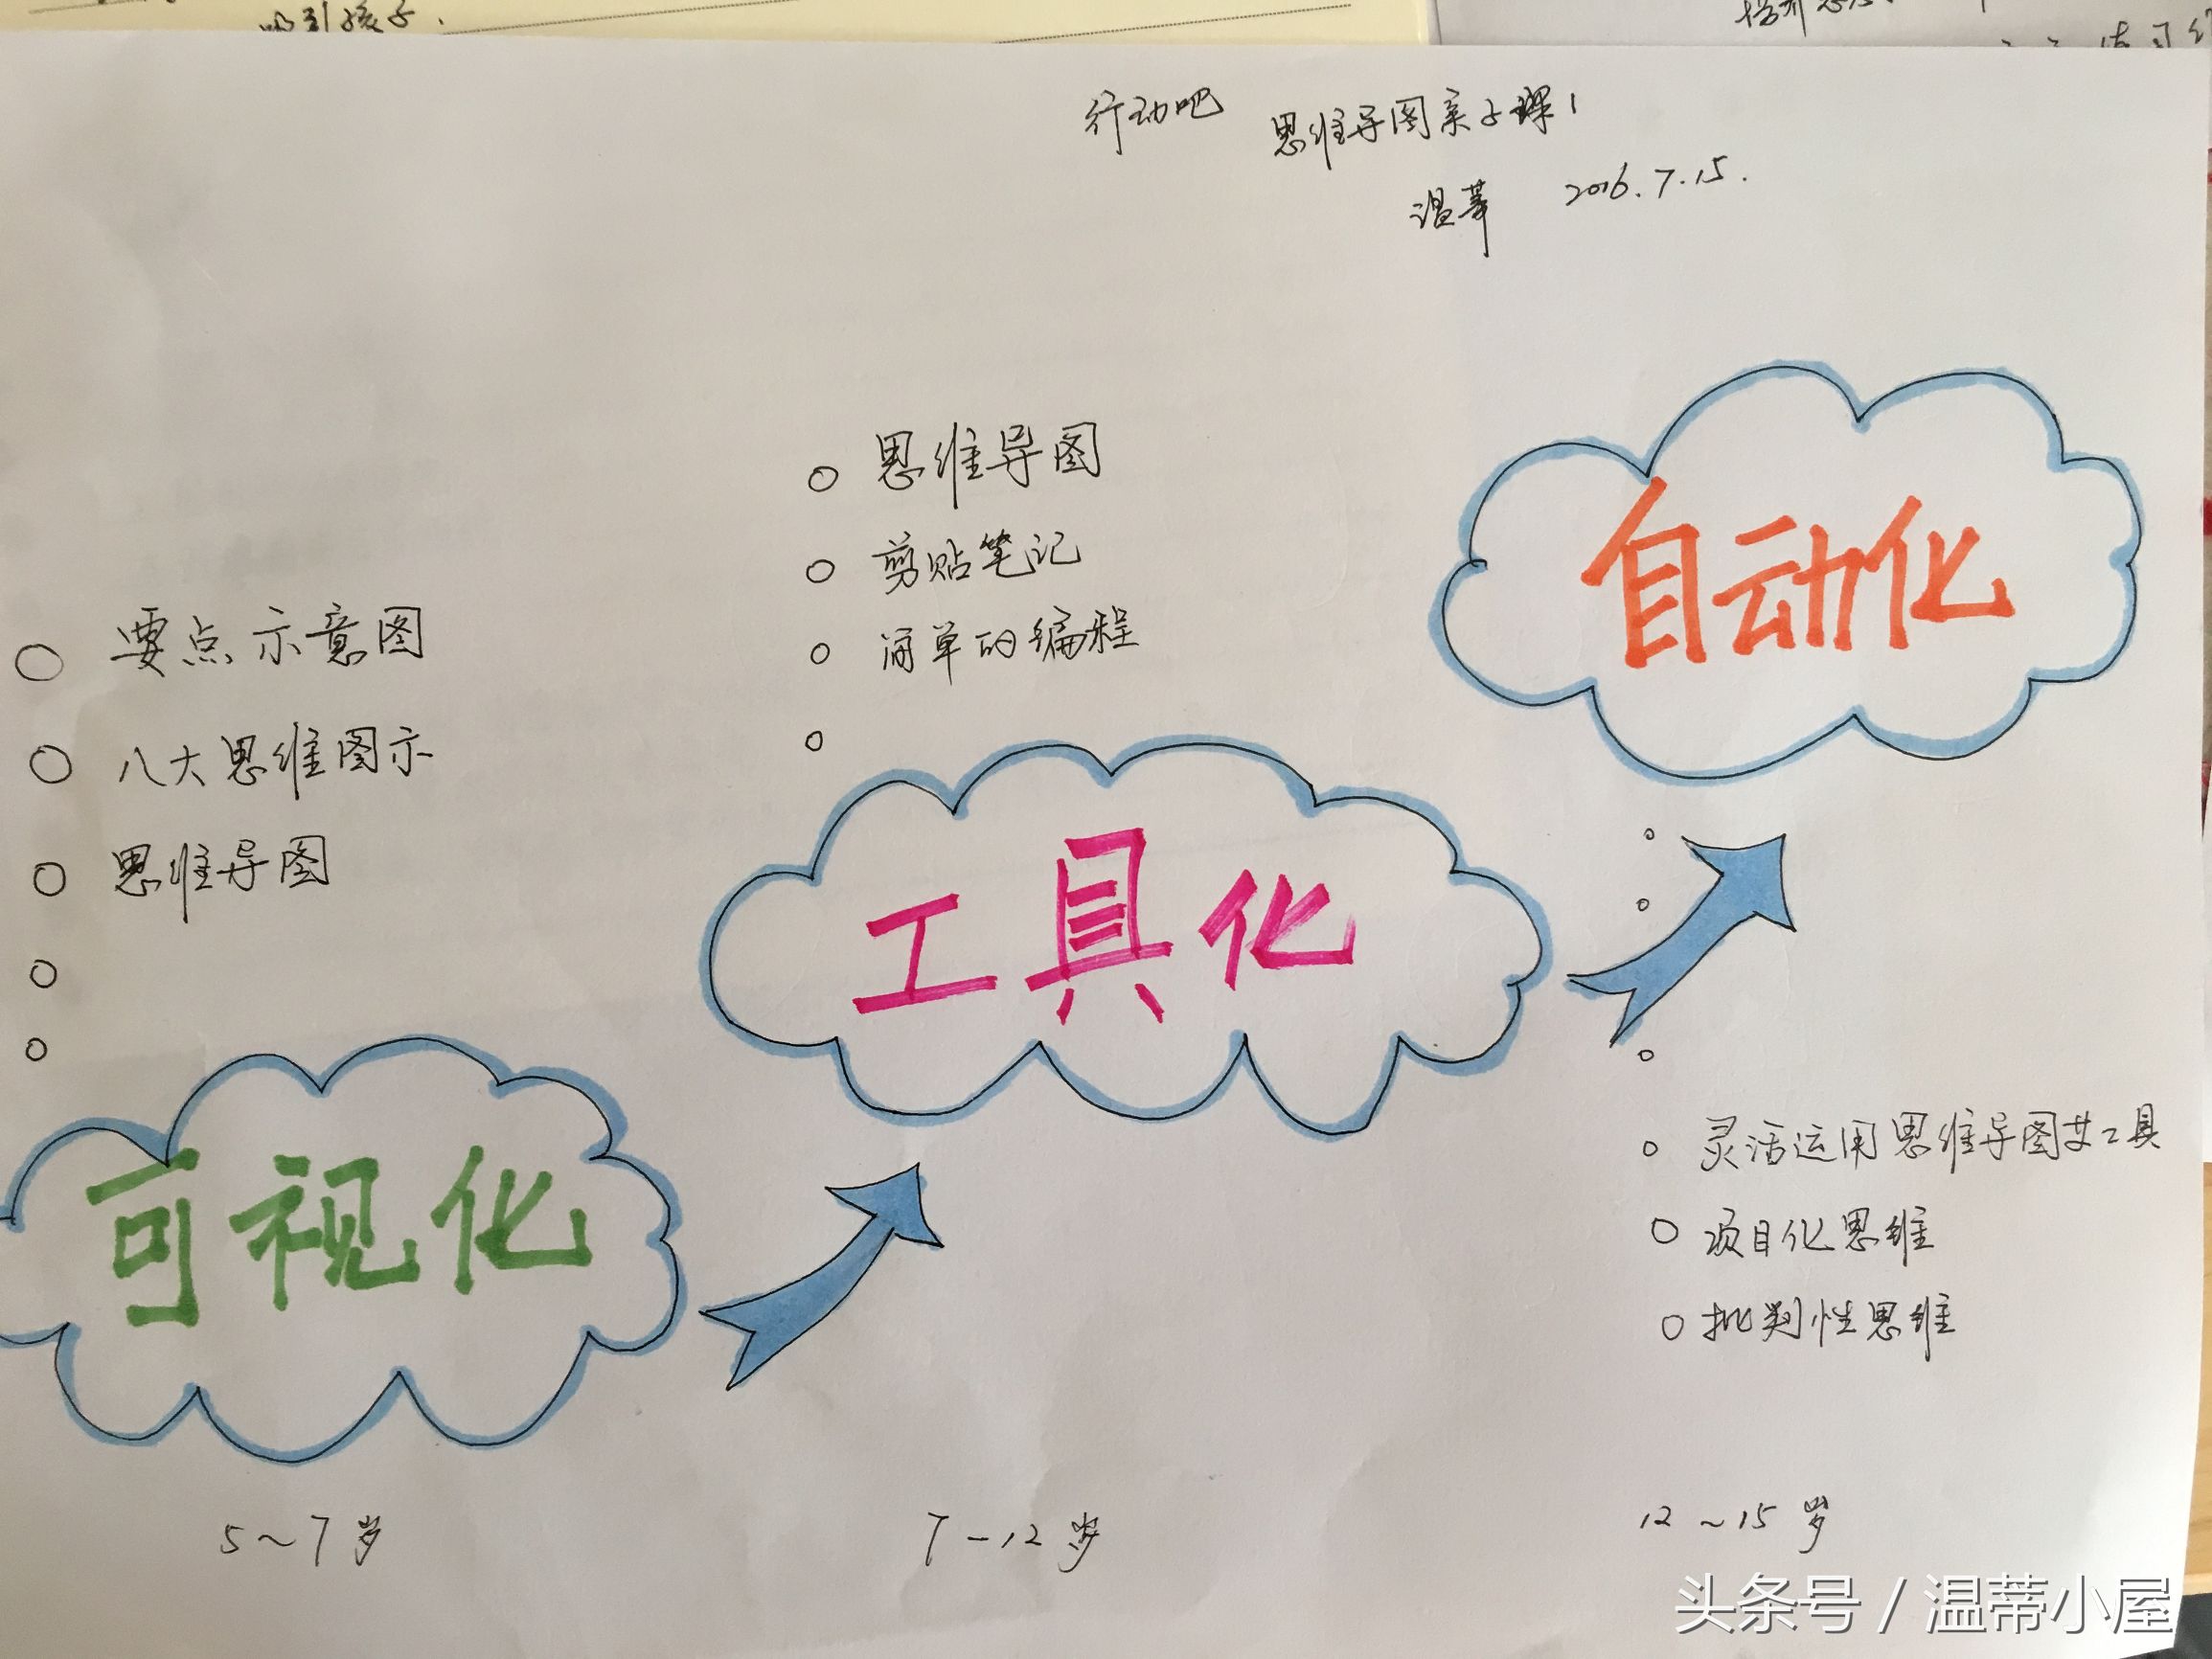 吸引孩子.
行动吧 思维导图亲子课1
温蒂 2016.7.15.
○ 要点示意图
○ 八大思维图示
○ 思维导图
○
○
可视化
5～7岁
○ 思维导图
○ 剪贴笔记
○ 简单的编程
○
工具化
7-12岁
自动化
○ 灵活运用思维导图等工具
○ 项目化思维
○ 批判性思维
12～15岁
头条号 / 温蒂小屋